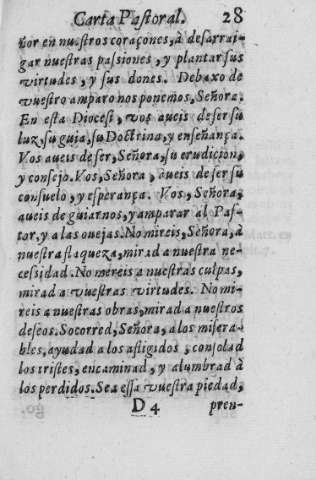 Carta Pastoral. 28
ñor en nuestros coraçones, à desarrai-
gar nuestras passiones, y plantar sus
virtudes, y sus dones. Debaxo de
vuestro amparo nos ponemos, Señora.
En esta Diocesi, vos aueis de ser su
luz, su guia, su Doctrina, y enseñança.
Vos aueis de ser, Señora, su erudicion,
y consejo. Vos, Señora, aueis de ser su
consuelo, y esperança. Vos, Señora,
aueis de guiarnos, y amparar al Pas-
tor, y a las ouejas. No mireis, Señora, à
nuestra flaqueza, mirad a nuestra ne-
cessidad. No mereis a nuestras culpas,
mirad a vuestras virtudes. No mi-
reis a nuestras obras, mirad a nuestros
deseos. Socorred, Señora, a los misera-
bles, ayudad a los afligidos, consolad
los tristes, encaminad, y alumbrad à
los perdidos. Sea essa vuestra piedad,
D 4 pren-